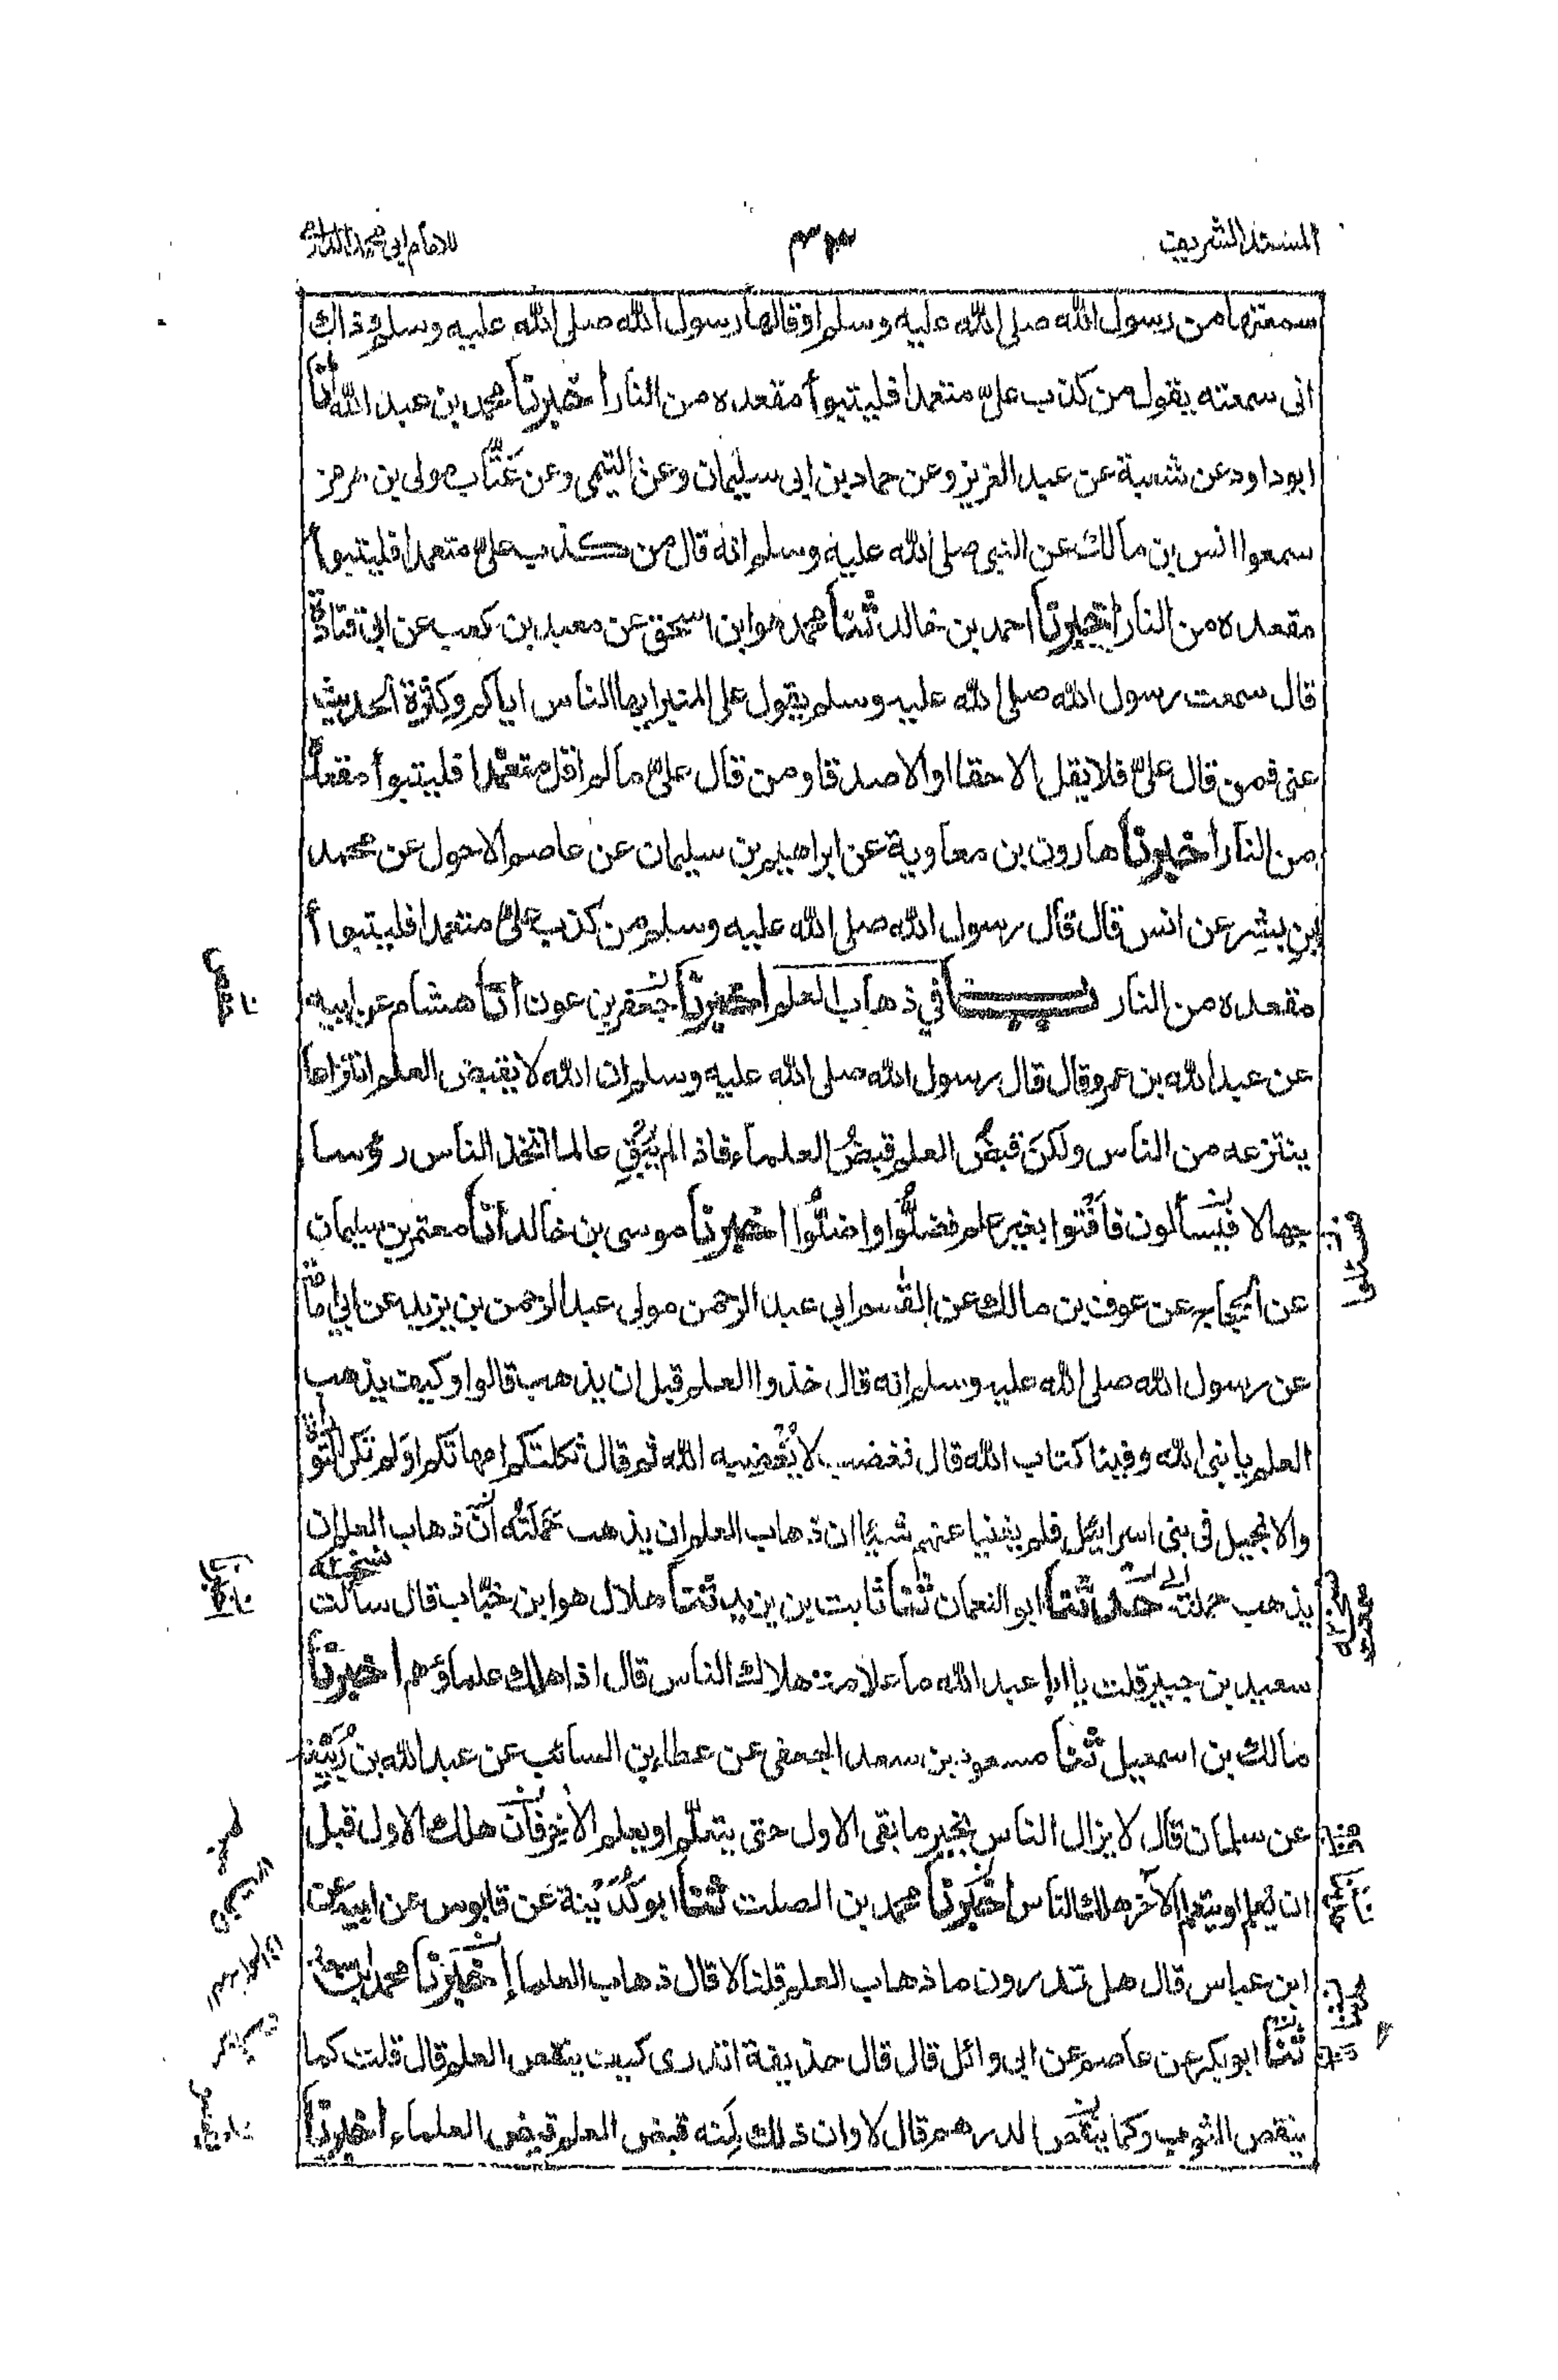 المسند الشريف
للامام ابي محمد الدارمي
سمعتها من رسول الله صلى الله عليه وسلم او قالها رسول الله صلى الله عليه وسلم وذاك
انى سمعته يقول من كذب علىّ متعمدا فليتبوأ مقعده من النار اخبرنا محمد بن عبد الله انا
ابو داود عن شعبة عن عبد العزيز وعن حماد بن ابى سليمان وعن التيمى وعن عَتَّاب مولى بن هرمز
سمعوا انس بن مالك عن النبى صلى الله عليه وسلم انه قال من كذب علىّ متعمدا فليتبوأ
مقعده من النار اخبرنا احمد بن خالد ثنا محمد هو ابن اسحق عن معبد بن كعب عن ابى قتادة
قال سمعت رسول الله صلى الله عليه وسلم يقول على المنبر ايها الناس اياكم وكثرة الحديث
عنى فمن قال علىّ فلا يقل الا حقا او الا صدقا ومن قال علىّ ما لم اقل متعمدا فليتبوأ مقعده
من النار اخبرنا هارون بن معاوية عن ابراهيم بن سليمان عن عاصم الاحول عن محمد
بن بشر عن انس قال قال رسول الله صلى الله عليه وسلم من كذب علىّ متعمدا فليتبوأ
مقعده من النار باب في ذهاب العلم اخبرنا جعفر بن عون انا هشام عن ابيه
عن عبد الله بن عمرو قال قال رسول الله صلى الله عليه وسلم ان الله لا يقبض العلم انتزاعا
ينتزعه من الناس ولكن قبضُ العلم قبضُ العلماء فاذا لم يُبْقِ عالما اتخذ الناس رؤسا
جهالا فيسألون فأفتوا بغير علم فضلُّوا واضلُّوا اخبرنا موسى بن خالد انا معتمر بن سليمان
عن الحجاج عن عوف بن مالك عن القسم ابى عبد الرحمن مولى عبد الرحمن بن يزيد عن ابى امامة
عن رسول الله صلى الله عليه وسلم انه قال خذوا العلم قبل ان يذهب قالوا وكيف يذهب
العلم يا نبى الله وفينا كتاب الله قال فغضب لا يُغْضِبه الله ثم قال ثكلتكم امهاتكم اَوَلم تكن التوراة
والانجيل فى بنى اسرائيل فلم يغنيا عنهم شيئا ان ذهاب العلم ان يذهب حَمَلَتُه اِنَّ ذهاب العلم ان
يذهب حملته حدثنا ابو النعمان ثنا ثابت بن يزيد ثنا هلال هو ابن خبّاب قال سألت
سعيد بن جبير قلت يا ابا عبد الله ما علامة هلاك الناس قال اذا هلك علماؤهم اخبرنا
مالك بن اسمعيل ثنا مسعود بن سعد الجعفى عن عطاء بن السائب عن عبد الله بن رُبَيِّعة
عن سلمان قال لا يزال الناس بخير ما بقى الاول حتى يتعلّم او يعلم الاخر فان هلك الاول قبل
ان يُعلم او يتعلم الآخر هلك الناس اخبرنا محمد بن الصلت ثنا ابو كُدَيْنة عن قابوس عن ابيه عن
ابن عباس قال هل تدرون ما ذهاب العلم قلنا لا قال ذهاب العلماء اخبرنا محمد بن سعيد
ثنا ابو بكر عن عاصم عن ابى وائل قال قال حذيفة اتدرى كيف ينقص العلم قال قلت كما
ينقص الثوب وكما ينقص الدرهم قال لا وان ذلك لمنه قبض العلم قبض العلماء اخبرنا